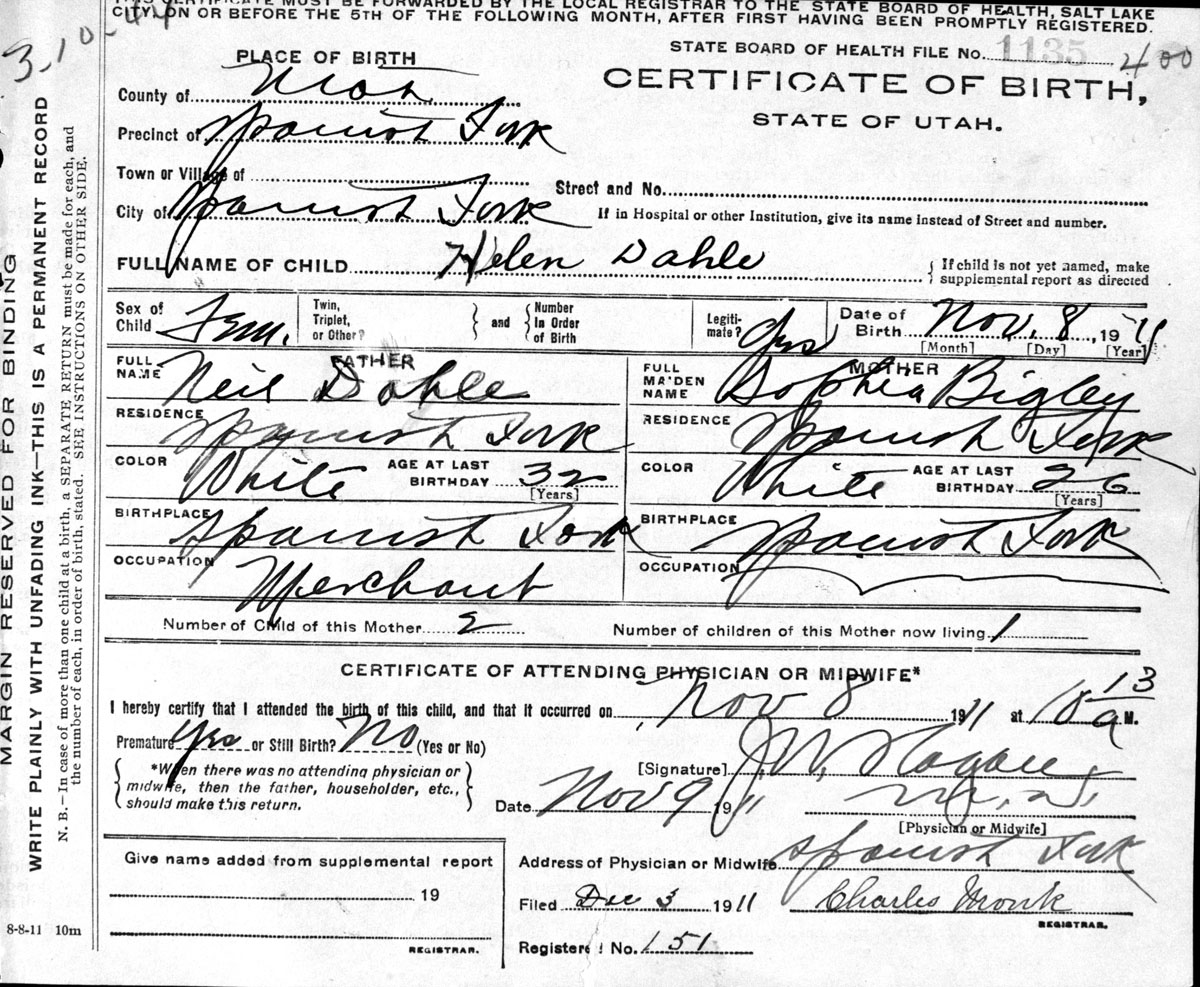 CITY, ON OR BEFORE THE 5TH OF THE FOLLOWING MONTH, AFTER FIRST HAVING BEEN PROMPTLY REGISTERED.
STATE BOARD OF HEALTH FILE No. 1135 400
PLACE OF BIRTH
CERTIFICATE OF BIRTH,
STATE OF UTAH.
County of Utah
Precinct of Spanish Fork
Town or Village of
Street and No.
City of Spanish Fork
If in Hospital or other Institution, give its name instead of Street and number.
FULL NAME OF CHILD Helen Dahle
{ If child is not yet named, make supplemental report as directed
Sex of Child Fem.
Twin, Triplet, or Other? } and { Number In Order of Birth
Legitimate? Yes
Date of Birth Nov. 8, 1911
[Month] [Day] [Year]
FATHER
FULL NAME Neil Dahle
RESIDENCE Spanish Fork
COLOR White AGE AT LAST BIRTHDAY 32
[Years]
BIRTHPLACE Spanish Fork
OCCUPATION Merchant
MOTHER
FULL MAIDEN NAME Sophia Bigley
RESIDENCE Spanish Fork
COLOR White AGE AT LAST BIRTHDAY 26
[Years]
BIRTHPLACE Spanish Fork
OCCUPATION
Number of Child of this Mother 2 Number of children of this Mother now living 1
CERTIFICATE OF ATTENDING PHYSICIAN OR MIDWIFE*
I hereby certify that I attended the birth of this child, and that it occurred on Nov 8 1911 at 10 13 a M.
Premature Yes or Still Birth? No (Yes or No)
{ *When there was no attending physician or midwife, then the father, householder, etc., should make this return. }
[Signature] J.W.
M.D.
Date Nov 9 1911
[Physician or Midwife]
Give name added from supplemental report
19
REGISTRAR.
Address of Physician or Midwife Spanish Fork
Filed Dec 3 1911 Charles Monk
REGISTRAR.
Registered No. 151
8-8-11 10m
MARGIN RESERVED FOR BINDING
WRITE PLAINLY WITH UNFADING INK—THIS IS A PERMANENT RECORD
N. B.—In case of more than one child at a birth, a SEPARATE RETURN must be made for each, and
the number of each, in order of birth, stated. SEE INSTRUCTIONS ON OTHER SIDE.